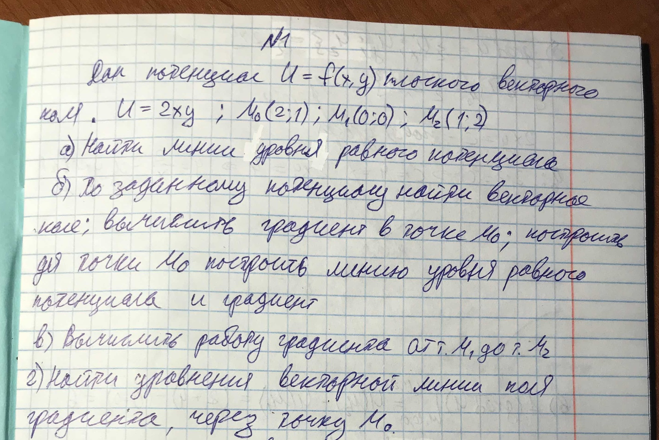 №1
Дан потенциал U = f(x,y) плоского векторного
поля. U = 2xy ; M₀(2;1) ; M₁(0;0) ; M₂(1;2)
а) Найти линии уровня равного потенциала
б) По заданному потенциалу найти векторное
поле; вычислить градиент в точке M₀; построить
для точки M₀ построить линию уровня равного
потенциала и градиент
в) Вычислить работу градиента от т. M₁ до т. M₂
г) Найти уравнения векторной линии поля
градиента, через точку M₀.